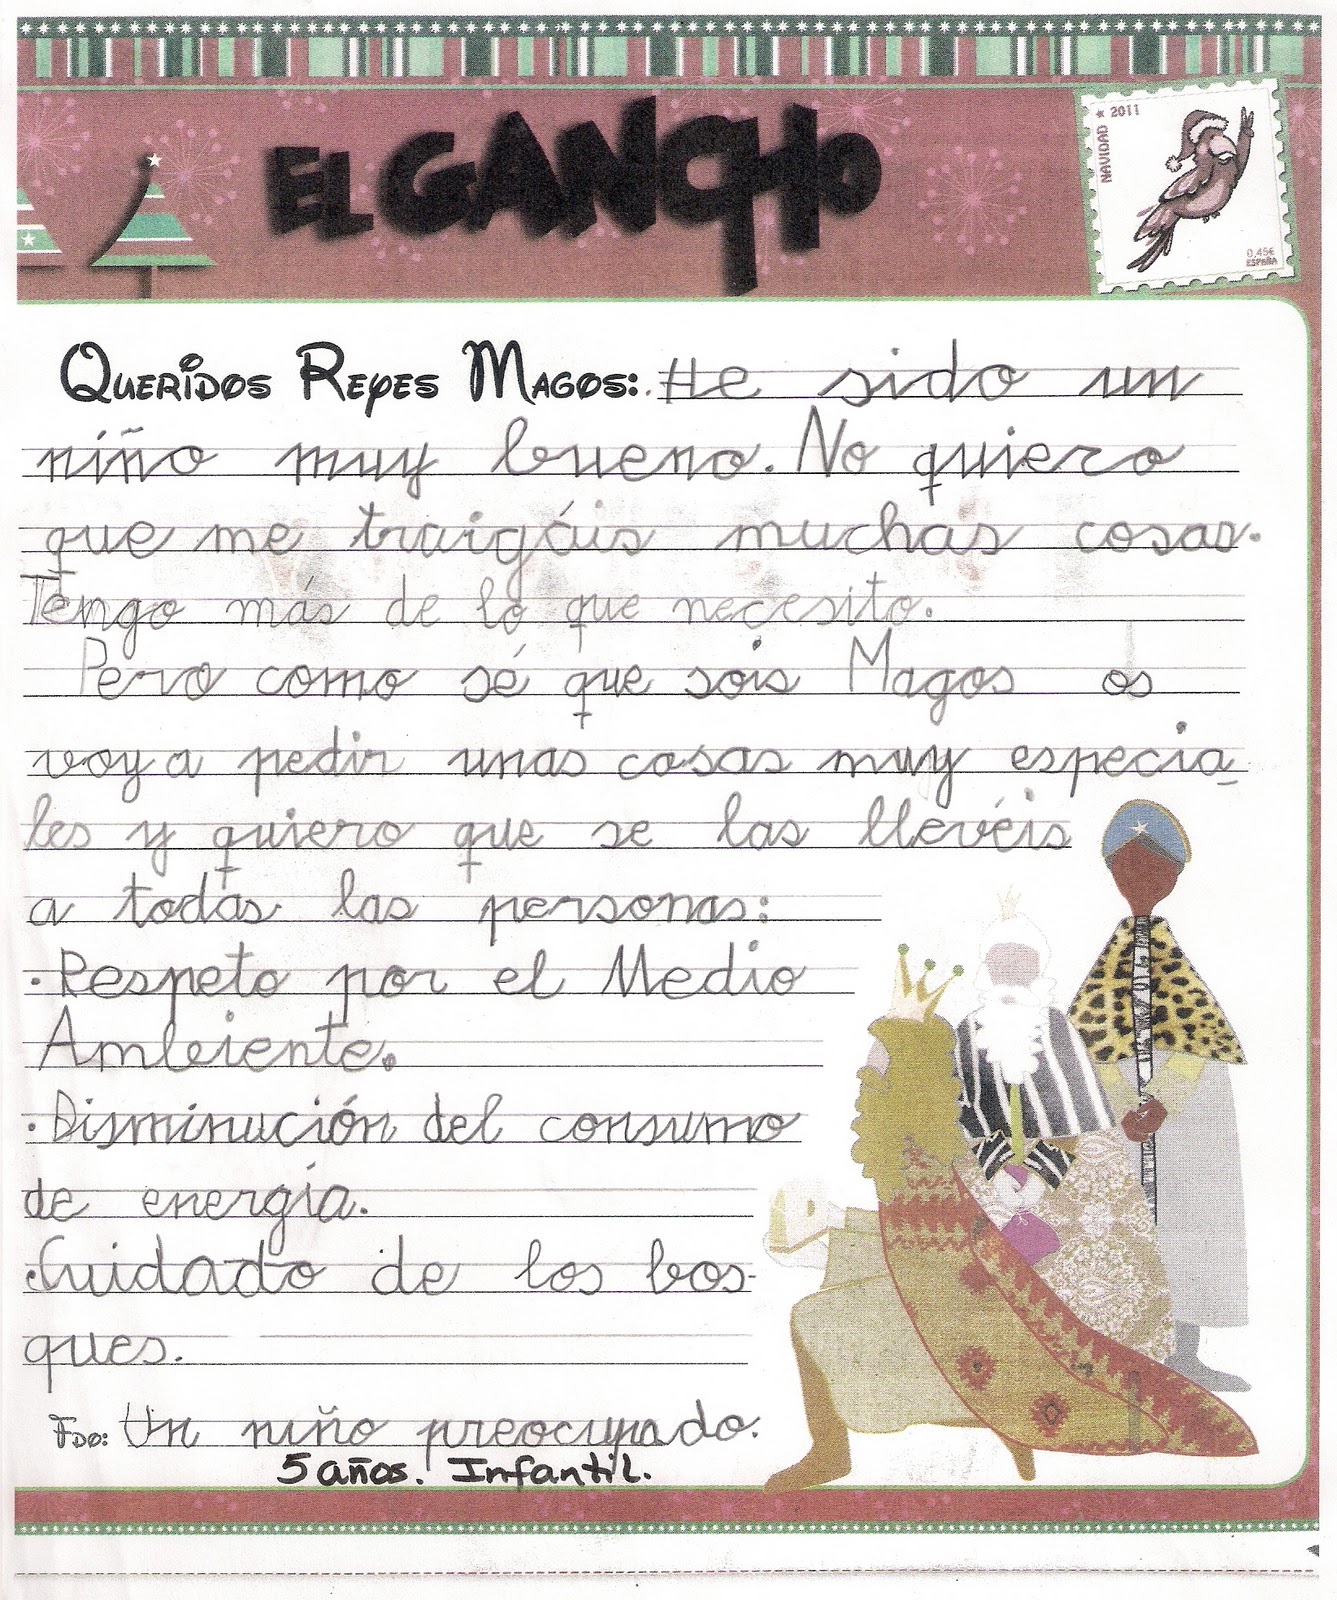 EL GANCHO
NAVIDAD ★ 2011
0,45€
ESPAÑA
Queridos Reyes Magos: He sido un
niño muy bueno. No quiero
que me traigáis muchas cosas.
Tengo más de lo que necesito.
Pero como sé que sois Magos os
voy a pedir unas cosas muy especia_
les y quiero que se las llevéis
a todas las personas:
·Respeto por el Medio
Ambiente.
·Disminución del consumo
de energía.
·Cuidado de los bos-
ques.
Fdo: Un niño preocupado.
5 años. Infantil.